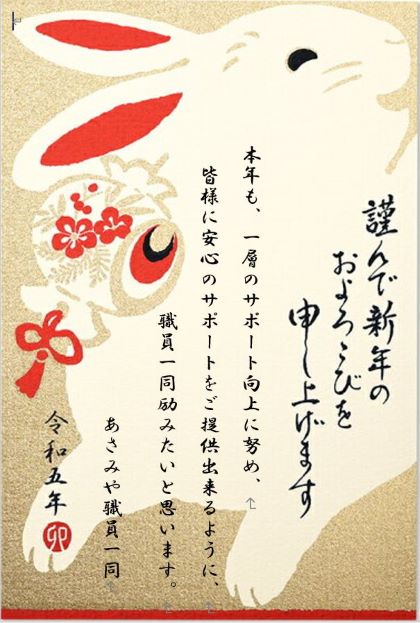 謹んで新年の
およろこびを
申し上げます
本年も、一層のサポート向上に努め、
皆様に安心のサポートをご提供出来るように、
職員一同励みたいと思います。
あさみや職員一同
令和五年
卯